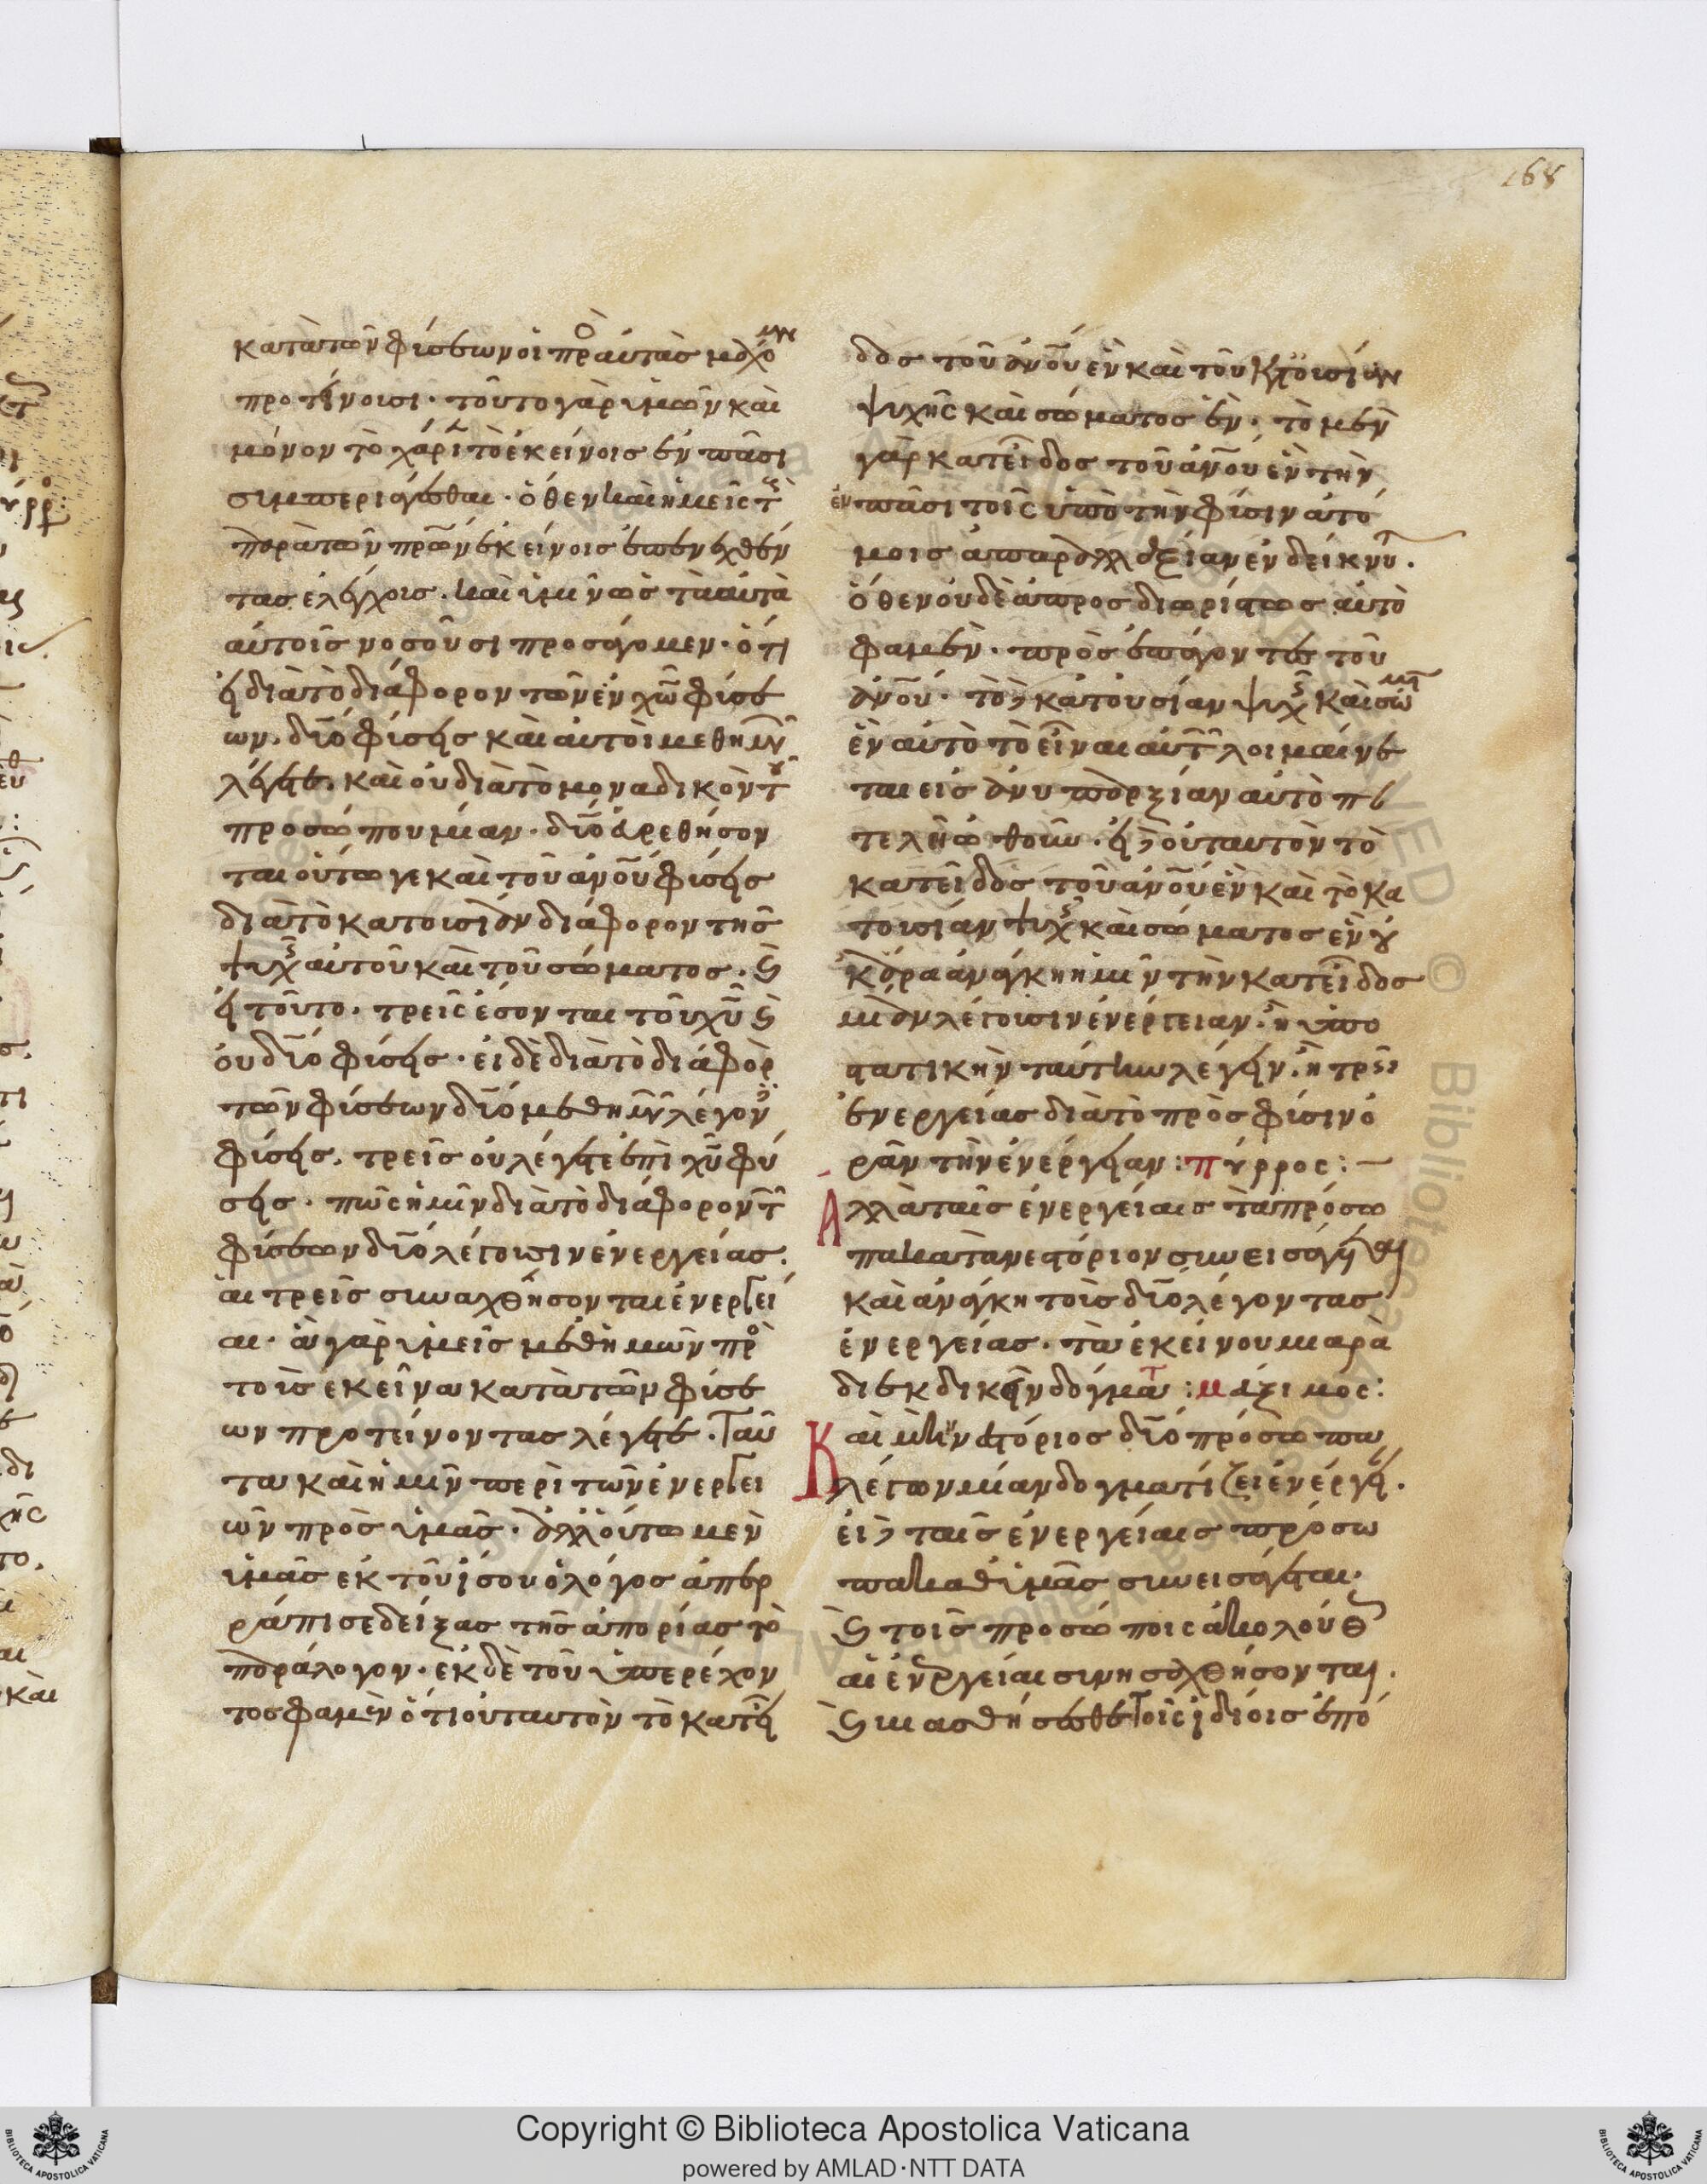 168
κατὰ τῶν φύσεων οἱ πρὸ αὐτὰς μαχόμεν
προτείνουσι· τοῦτο γὰρ ὑμῶν καὶ
μόνον τὸ χάριν τὸ ἐκείνοις ἐν πᾶσι
συμπεριάγεσθαι· ὅθεν καὶ ἡμεῖς τοῖς
παρὰ τῶν πρων ἐκείνοις ἐπενεχθέν
τας ἐλέγχοις. καὶ ὑμῖν ὡς τὰ αὐτὰ
αὐτοῖς νοσοῦσι προσάγομεν· ὅτι
εἰ διὰ τὸ διάφορον τῶν ἐν χῶ φύσε
ων, δύο φύσεις καὶ αὐτοὶ μεθ' ἡμῶν
λέγετε, καὶ οὐ διὰ τὸ μοναδικὸν τοῦ
προσώπου μίαν· δύο ἀρεθήσον
ται οὕτω γε καὶ τοῦ ἀνου φύσεις
διὰ τὸ κατουσίαν διάφορον τῆς
ψυχῆς αὐτοῦ καὶ τοῦ σώματος· καὶ
εἰ τοῦτο· τρεῖς ἔσονται τοῦ χυ καὶ
οὐ δύο φύσεις· εἰ δὲ διὰ τὸ διάφορ
τῶν φύσεων δύο μεθ' ἡμῶν λέγοντες
φύσεις, τρεῖς οὐ λέγετε ἐπὶ χυ φύ
σεις· πῶς ἡμῖν διὰ τὸ διάφορον τῶν
φύσεων δύο λέγουσιν ἐνεργείας.
αἱ τρεῖς συναχθήσονται ἐνεργεί
αι· ἃ γὰρ ὑμεῖς μεθ' ἡμῶν πρὸ
τοὺς ἐκεῖνα κατὰ τῶν φύσε
ων προτείνοντας λέγετε· ταῦ
τα καὶ ἡμῖν περὶ τῶν ἐνεργει
ῶν πρὸς ὑμᾶς· ἀλλ' οὕτω μὲν
ὑμᾶς ἐκ τοῦ ἴσου ὁ λόγος ἀπερ
ράπισε δείξας τῆς ἀπορίας τὸ
παράλογον· ἐκ δὲ τοῦ ὑπερέχον
τος φαμὲν ὅτι οὐ ταυτὸν τὸ κατ' εἶ
δος τοῦ ανου ἓν καὶ τοῦ κατουσίαν
ψυχῆς καὶ σώματος ἕν· τὸ μὲν
γὰρ κατ' εἶδος τοῦ ἀνου ἓν τὴν
ἐν πᾶσι τοῖς ὑπὸ τὴν φύσιν ἀτό
μοις ἀπαραλλαξίαν ἐνδείκνυτ.
ὅθεν οὐδὲ ἀπροσδιορίστως αὐτὸ
φαμὲν· προσεπάγοντες τοῦ
ανου· τὸ δὲ κατουσίαν ψυχῆς καὶ σώματ
ἓν αὐτὸ τὸ εἶναι αὐτῶν λοιμαίνε
ται εἰς ἀνυπαρξίαν αὐτὸ πα
τελῆ ὠθοῦν· εἰ δὲ οὐ ταυτὸν τὸ
κατ' εἶδος τοῦ ἀνου ἓν καὶ τὸ κα
τουσίαν ψυχῆς καὶ σώματος ἓν οὐ
κ ἄρα ἀνάγκη ἡμῖν τὴν κατ' εἶδος
μίαν λέγουσιν ἐνέργειαν. ἢ ὑπο
στατικὴν ταύτην λέγειν. ἢ τρεῖς
ἐνεργείας διὰ τὸ πρὸς φύσιν ὁ
ρᾶν τὴν ἐνέργειαν: πύρρος:
Ἀλλὰ ταῖς ἐνεργείαις τὰ πρόσω
πα κατὰ νεστόριον συνεισάγεται
καὶ ἀνάγκη τοὺς δύο λέγοντας
ἐνεργείας· τὰ ἐκείνου μιαρὰ
διεκδικεῖν δόγματ: μάξιμος:
Καὶ μὴν νεστόριος δύο πρόσωπα
λέγων μίαν δογματίζει ἐνέργει.
εἰ δὲ ταῖς ἐνεργείαις πρόσω
πα καθ' ὑμᾶς συνεισάγεται.
καὶ τοῖς προσώποις ἀκολούθ
αἱ ἐνέργειαι συνησαχθήσονται.
καὶ βιασθήσεσθε τοῖς ἰδίοις ἑπό
Copyright © Biblioteca Apostolica Vaticana
powered by AMLAD·NTT DATA